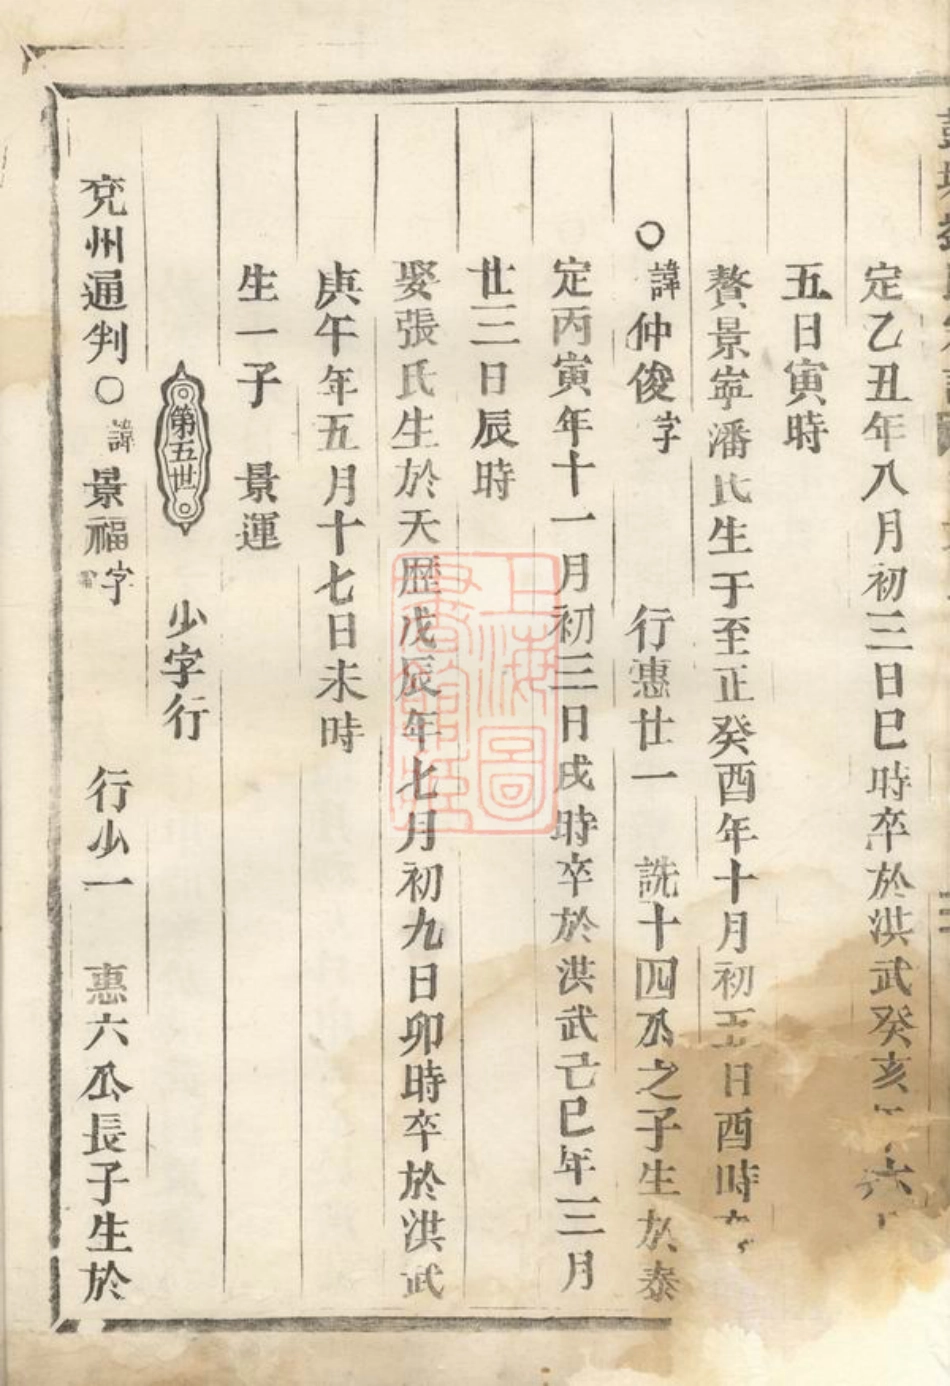 定乙丑年八月初三日巳時卒於洪武癸亥年六
五日寅時
贅景寧潘氏生于至正癸酉年十月初五日酉時
○諱仲俊字 行惠廿一 詵十四公之子生於泰
定丙寅年十一月初三日戌時卒於洪武己巳年三月
廿三日辰時
娶張氏生於天歷戊辰年七月初九日卯時卒於洪武
庚午年五月十七日未時
生一子 景運
第五世 少字行
兖州通判○諱景福字 行少一 惠六公長子生於
上海圖書館藏